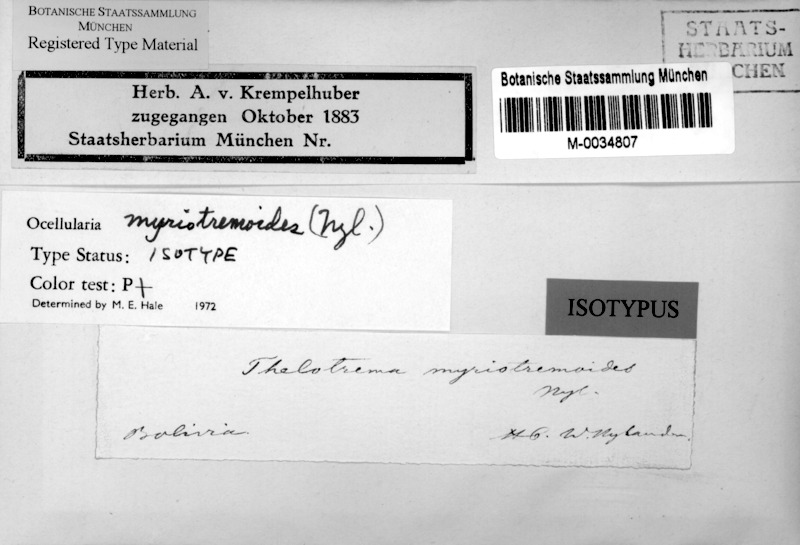 BOTANISCHE STAATSSAMMLUNG
MÜNCHEN
Registered Type Material
STAATS-
HERBARIUM
CHEN
Herb. A. v. Krempelhuber
zugegangen Oktober 1883
Staatsherbarium München Nr.
Botanische Staatssammlung München
M-0034807
Ocellularia myriotremoides (Nyl.)
Type Status: ISOTYPE
Color test: P+
Determined by M. E. Hale 1972
ISOTYPUS
Thelotrema myriotremoides
Nyl.
Bolivia. Hb. W. Nylander.